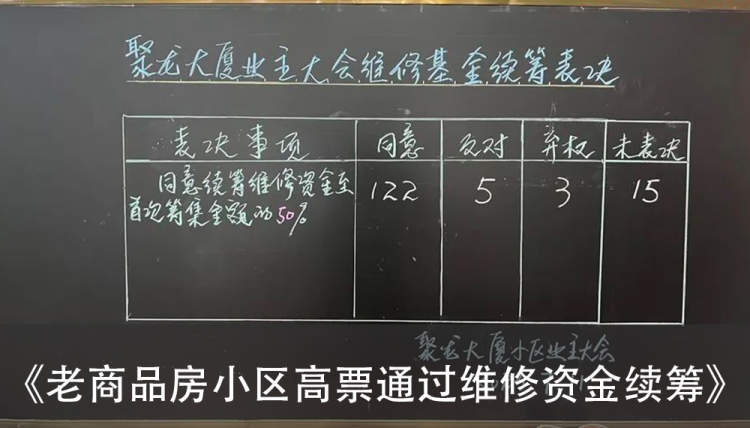 聚龙大厦业主大会维修基金续筹表决
表决事项 同意 反对 弃权 未表决
同意续筹维修资金至 122 5 3 15
首次筹集金额的50%
聚龙大厦小区业主大会
《老商品房小区高票通过维修资金续筹》